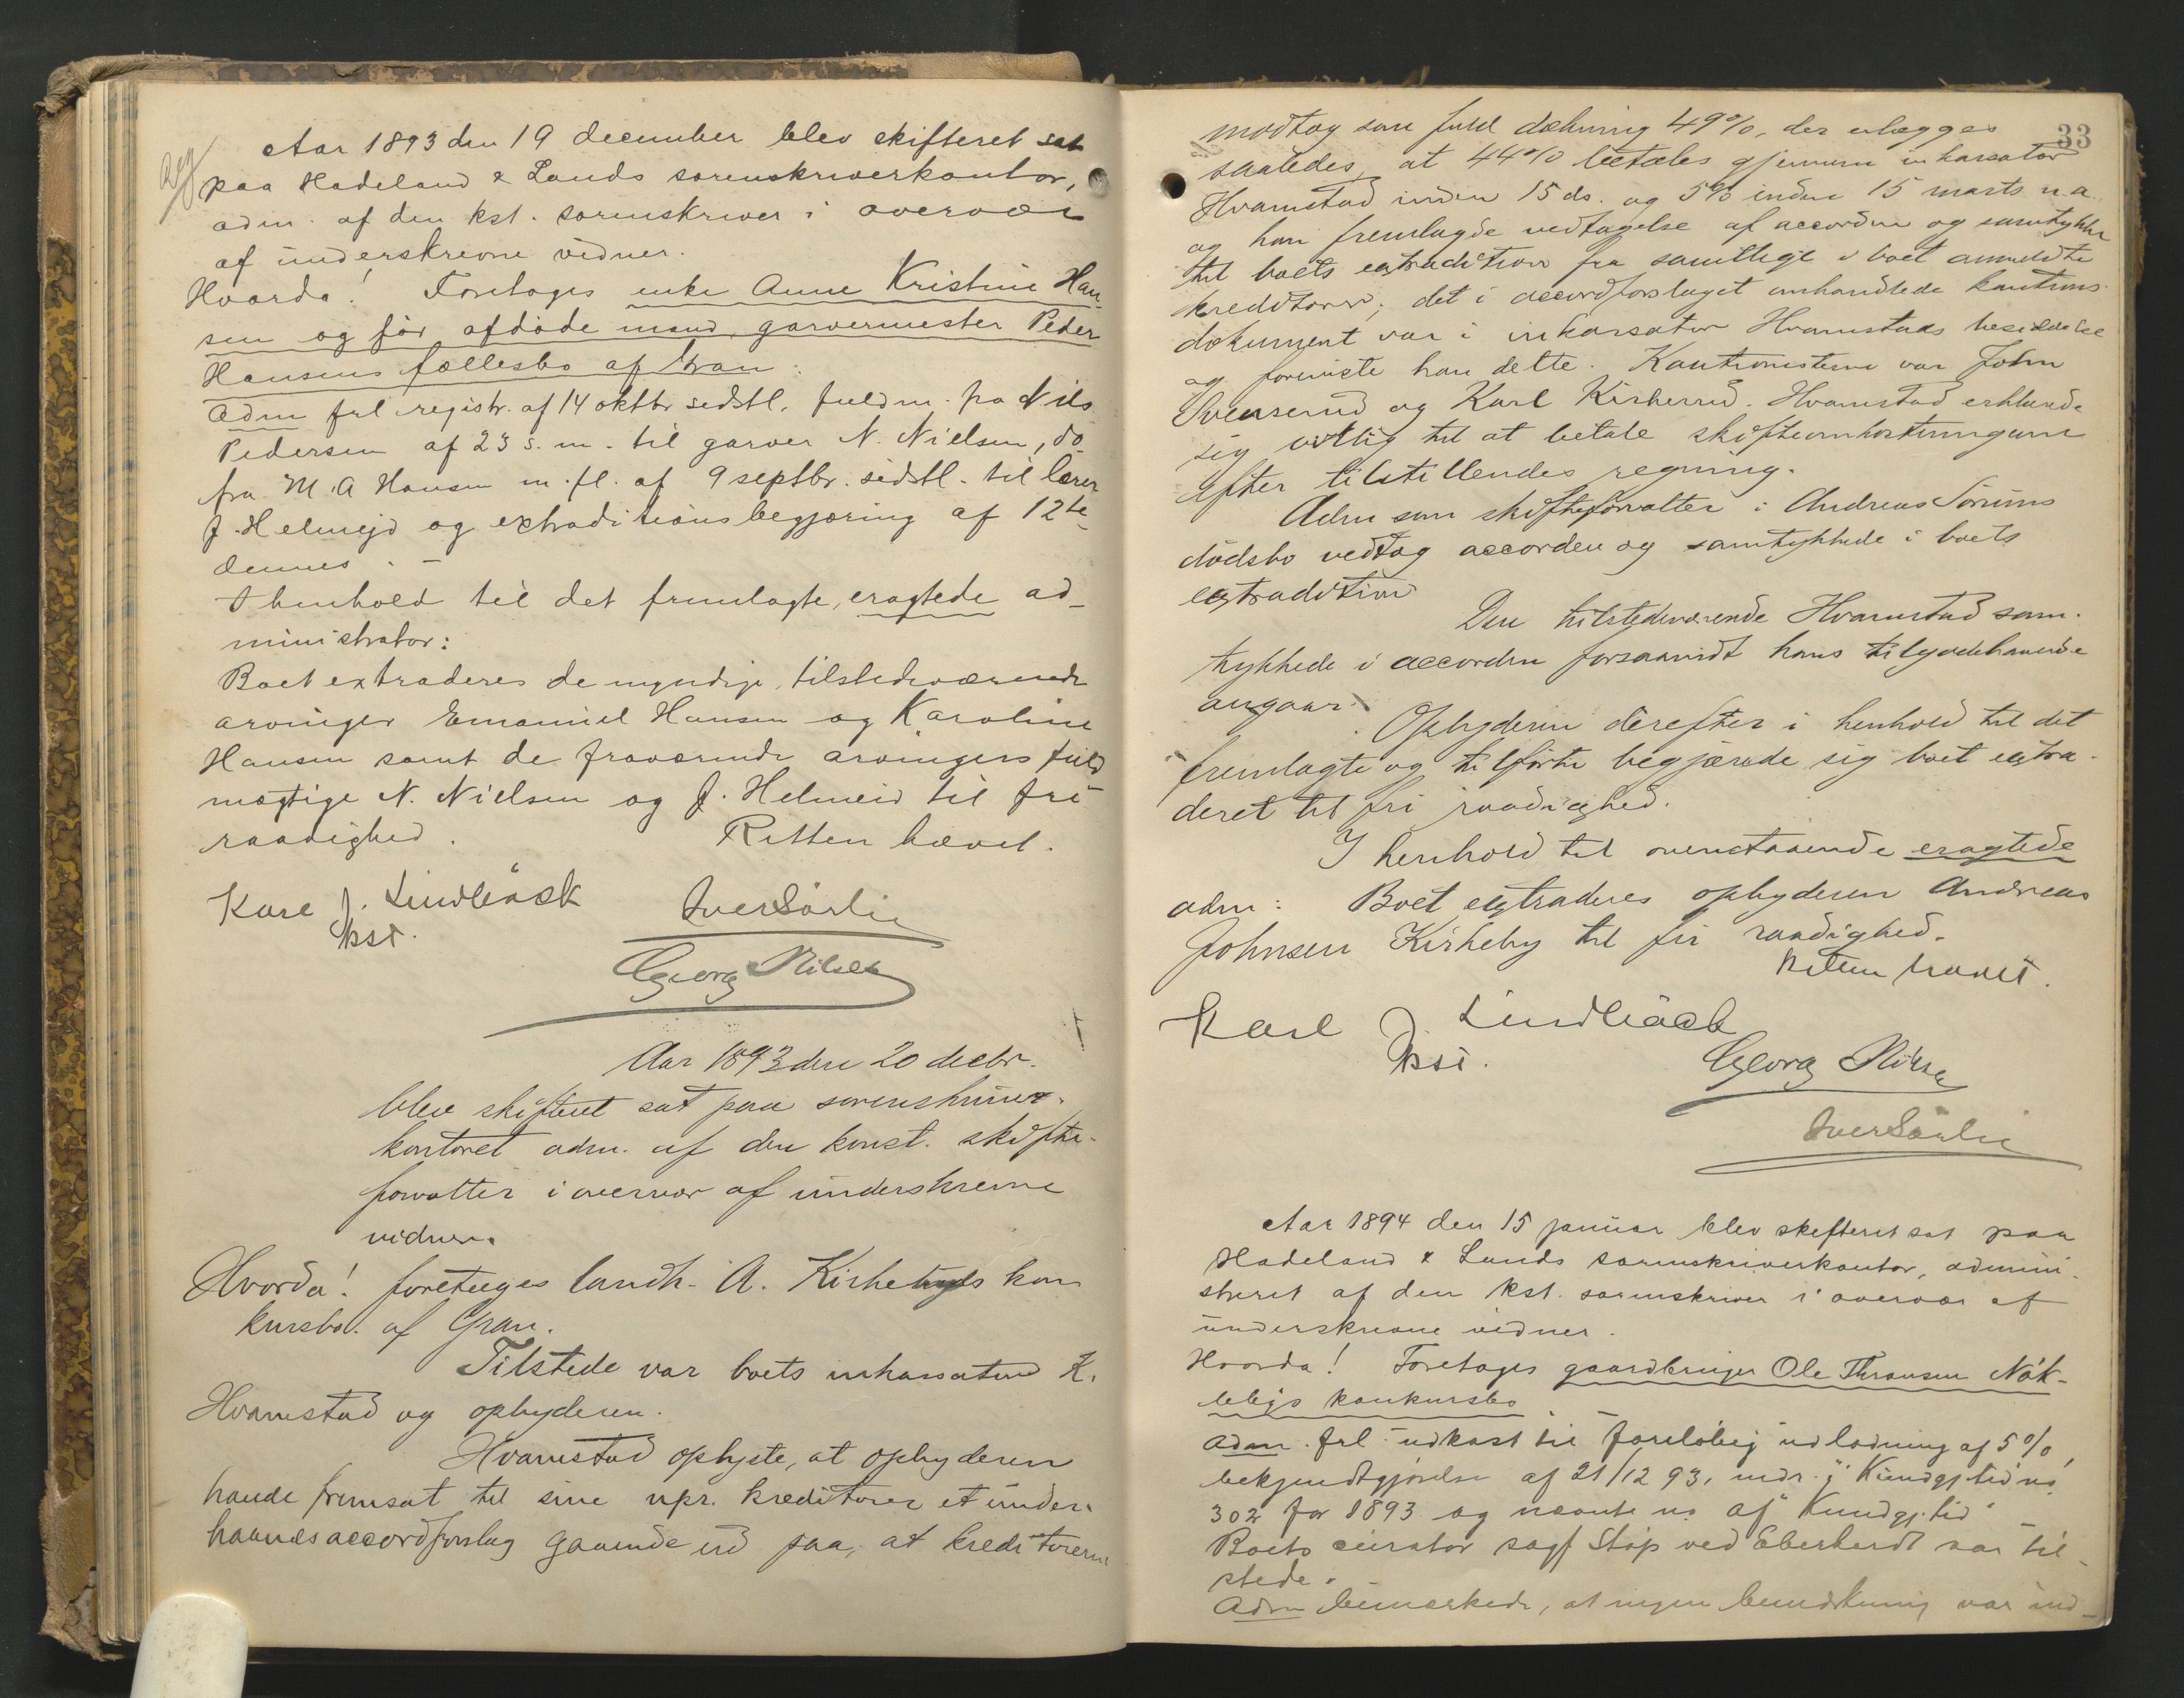 Aar 1893 den 19 december blev skifteret sat
paa Hadeland & Lands sorenskriverkontor,
adm. af den kst. sorenskriver i overvær
af underskrevne vidner.
Hvorda! Foretoges enke Anne Kristine Han-
sen og før afdøde mand, garvermester Peder
Hansens fællesbo af Gran.
Adm frl registr. af 14 oktbr sidstl. fuldm. fra Nils
Pedersen af 23 s. m. til garver N. Nielsen, do
fra M. A Hansen m. fl. af 9 septbr. sidstl. til lærer
J. Helmejd og extraditionsbegjæring af 12te
dennes. –
I henhold til det fremlagte, eragtede ad-
ministrator:
Boet extraderes de myndige, tilstedeværende
arvinger Emanuel Hansen og Karoline
Hansen samt de fraværende arvingers fuld
mægtige N. Nielsen og J. Helmeid til fri
raadighed. Retten hævet.
Karl J. Lindbäck Iver Sörlie
kst.
Georg Nilsen
Aar 1893 den 20 decbr.
blev skifteret sat paa sorenskriver-
kontoret adm. af den konst. skifte-
forvalter i overvær af underskrevne
vidner.
Hvorda! foretoges landh. A. Kirkebys kon
kursbo af Gran.
Tilstede var boets inkassator K.
Hvamstad og opbyderen.
Hvamstad oplyste, at opbyderen
havde fremsat til sine upr. kreditorer et under-
haandsaccordforslag gaaende ud paa, at kreditorerne
33
modtog som fuld dækning 49%, der erlægges
saaledes, at 44% betales gjennem inkassator
Hvamstad inden 15 ds. og 5% inden 15 marts n. a.
og han fremlagde vedtagelse af accorden og samtykke
til boets extradition fra samtlige i boet anmeldte
kreditorer; det i accordforslaget omhandlede kautions-
dokument var i inkassator Hvamstads besiddelse
og foreviste han dette. Kautionisterne var John
Svenserud og Karl Kirkerud. Hvamstad erklærede
sig villig til at betale skifteomkostningerne
efter tilstillendes regning.
Adm som skifteforvalter i Andreas Sörums
dödsbo vedtog accorden og samtykkede i boets
extradition
Den tilstedeværende Hvamstad sam-
tykkede i accorden forsaavidt hans tilgodehavende
angaar.
Opbyderen derefter i henhold til det
fremlagte og tilførte begjærede sig boet extra-
deret til fri raadighed.
I henhold til ovenstaaende eragtede
adm: Boet extraderes opbyderen Andreas
Johnsen Kirkeby til fri raadighed.
Retten hævet.
Karl J. Lindbäck
kst.
Georg Nilsen
Iver Sörlie
Aar 1894 den 15 januar blev skifteret sat paa
Hadeland & Lands sorenskriverkontor, admini-
streret af den kst. sorenskriver i overvær af
underskrevne vidner.
Hvorda! Foretoges gaardbruger Ole Thronsen Nök-
lebys konkursbo
Adm. frl. udkast til foreløbig udlodning af 5%,
bekjendtgjørelse af 21/12 93, indr. i Kundgj. tid no
302 for 1893 og nævnte no af "Kundgj. tid"
Boets curator sagf Støp ved Eberherdt var til-
stede.
Adm bemærkede, at ingen bemærkning var ind-